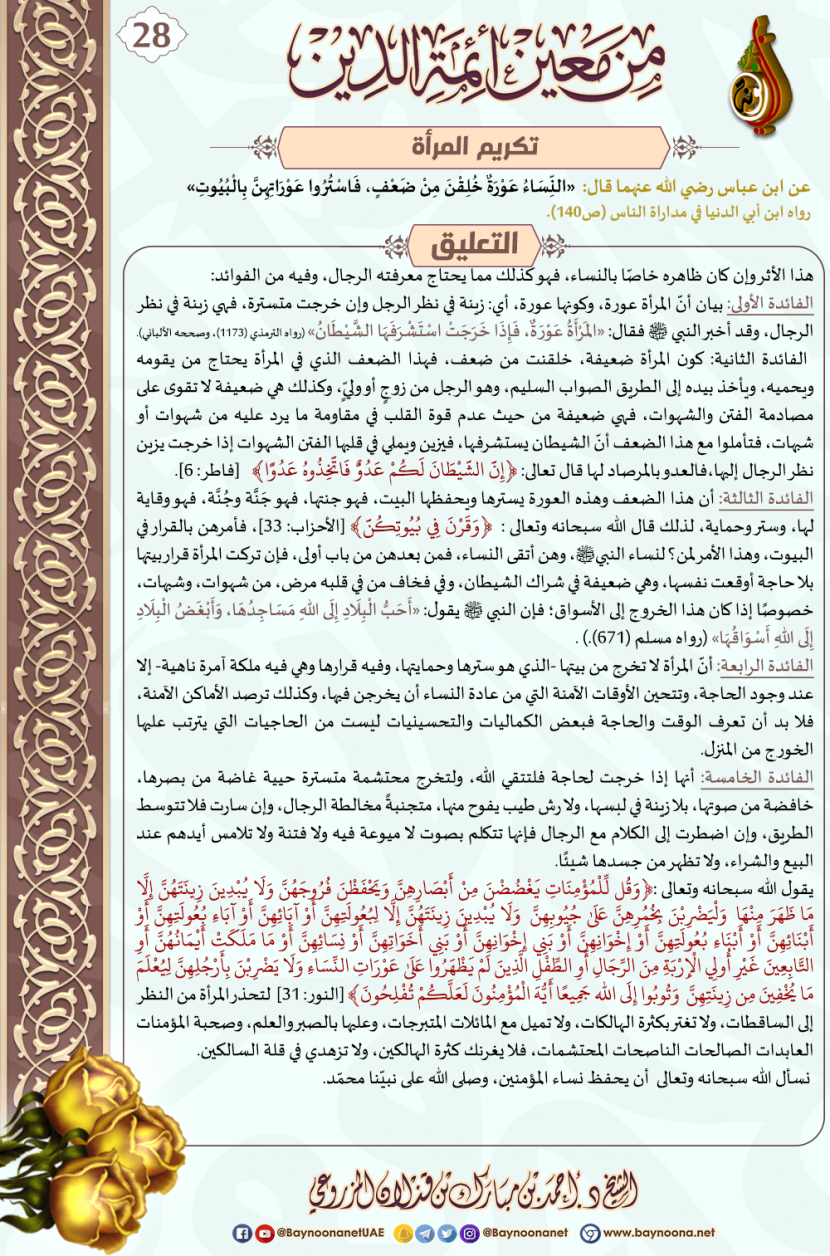 28
من معين أئمة الدين
تكريم المرأة
عن ابن عباس رضي الله عنهما قال: «النِّسَاءُ عَوْرَةٌ خُلِقْنَ مِنْ ضَعْفٍ، فَاسْتُرُوا عَوْرَاتِهِنَّ بِالْبُيُوتِ»
رواه ابن أبي الدنيا في مداراة الناس (ص140).
التعليق
هذا الأثر وإن كان ظاهره خاصًا بالنساء، فهو كذلك مما يحتاج معرفته الرجال، وفيه من الفوائد:
الفائدة الأولى: بيان أنّ المرأة عورة، وكونها عورة، أي: زينة في نظر الرجل وإن خرجت متسترة، فهي زينة في نظر
الرجال، وقد أخبر النبي ﷺ فقال: «المَرْأَةُ عَوْرَةٌ، فَإِذَا خَرَجَتْ اسْتَشْرَفَهَا الشَّيْطَانُ» (رواه الترمذي (1173)، وصححه الألباني).
الفائدة الثانية: كون المرأة ضعيفة، خلقنت من ضعف، فهذا الضعف الذي في المرأة يحتاج من يقومه
ويحميه، ويأخذ بيده إلى الطريق الصواب السليم، وهو الرجل من زوجٍ أو وليٍّ، وكذلك هي ضعيفة لا تقوى على
مصادمة الفتن والشهوات، فهي ضعيفة من حيث عدم قوة القلب في مقاومة ما يرد عليه من شهوات أو
شبهات، فتأملوا مع هذا الضعف أنّ الشيطان يستشرفها، فيزين ويملي في قلبها الفتن الشهوات إذا خرجت يزين
نظر الرجال إليها،فالعدو بالمرصاد لها قال تعالى: ﴿إِنَّ الشَّيْطَانَ لَكُمْ عَدُوٌّ فَاتَّخِذُوهُ عَدُوًّا﴾ [فاطر: 6].
الفائدة الثالثة: أن هذا الضعف وهذه العورة يسترها ويحفظها البيت، فهو جنتها، فهو جَنَّة وجُنَّة، فهو وقاية
لها، وستر وحماية، لذلك قال الله سبحانه وتعالى : ﴿وَقَرْنَ فِي بُيُوتِكُنَّ﴾ [الأحزاب: 33]، فأمرهن بالقرار في
البيوت، وهذا الأمر لمن؟ لنساء النبيﷺ، وهن أتقى النساء، فمن بعدهن من باب أولى، فإن تركت المرأة قرار بيتها
بلا حاجة أوقعت نفسها، وهي ضعيفة في شراك الشيطان، وفي فخاف من في قلبه مرض، من شهوات، وشبهات،
خصوصًا إذا كان هذا الخروج إلى الأسواق؛ فإن النبي ﷺ يقول: «أَحَبُّ الْبِلَادِ إِلَى اللهِ مَسَاجِدُهَا، وَأَبْغَضُ الْبِلَادِ
إِلَى اللهِ أَسْوَاقُهَا» (رواه مسلم (671).) .
الفائدة الرابعة: أنّ المرأة لا تخرج من بيتها -الذي هو سترها وحمايتها، وفيه قرارها وهي فيه ملكة آمرة ناهية- إلا
عند وجود الحاجة، وتتحين الأوقات الآمنة التي من عادة النساء أن يخرجن فيها، وكذلك ترصد الأماكن الآمنة،
فلا بد أن تعرف الوقت والحاجة فبعض الكماليات والتحسينيات ليست من الحاجيات التي يترتب عليها
الخورج من المنزل.
الفائدة الخامسة: أنها إذا خرجت لحاجة فلتتقي الله، ولتخرج محتشمة متسترة حيية غاضة من بصرها،
خافضة من صوتها، بلا زينة في لبسها، ولا رش طيب يفوح منها، متجنبةً مخالطة الرجال، وإن سارت فلا تتوسط
الطريق، وإن اضطرت إلى الكلام مع الرجال فإنها تتكلم بصوت لا ميوعة فيه ولا فتنة ولا تلامس أيدهم عند
البيع والشراء، ولا تظهر من جسدها شيئًا.
يقول الله سبحانه وتعالى :﴿وَقُل لِّلْمُؤْمِنَاتِ يَغْضُضْنَ مِنْ أَبْصَارِهِنَّ وَيَحْفَظْنَ فُرُوجَهُنَّ وَلَا يُبْدِينَ زِينَتَهُنَّ إِلَّا
مَا ظَهَرَ مِنْهَا وَلْيَضْرِبْنَ بِخُمُرِهِنَّ عَلَىٰ جُيُوبِهِنَّ وَلَا يُبْدِينَ زِينَتَهُنَّ إِلَّا لِبُعُولَتِهِنَّ أَوْ آبَائِهِنَّ أَوْ آبَاءِ بُعُولَتِهِنَّ أَوْ
أَبْنَائِهِنَّ أَوْ أَبْنَاءِ بُعُولَتِهِنَّ أَوْ إِخْوَانِهِنَّ أَوْ بَنِي إِخْوَانِهِنَّ أَوْ بَنِي أَخَوَاتِهِنَّ أَوْ نِسَائِهِنَّ أَوْ مَا مَلَكَتْ أَيْمَانُهُنَّ أَوِ
التَّابِعِينَ غَيْرِ أُولِي الْإِرْبَةِ مِنَ الرِّجَالِ أَوِ الطِّفْلِ الَّذِينَ لَمْ يَظْهَرُوا عَلَىٰ عَوْرَاتِ النِّسَاءِ وَلَا يَضْرِبْنَ بِأَرْجُلِهِنَّ لِيُعْلَمَ
مَا يُخْفِينَ مِن زِينَتِهِنَّ وَتُوبُوا إِلَى الله جَمِيعًا أَيُّهَ الْمُؤْمِنُونَ لَعَلَّكُمْ تُفْلِحُونَ﴾ [النور: 31] لتحذر المرأة من النظر
إلى الساقطات، ولا تغتر بكثرة الهالكات، ولا تميل مع المائلات المتبرجات، وعلها بالصبر والعلم، وصحبة المؤمنات
العابدات الصالحات الناصحات المحتشمات، فلا يغرنك كثرة الهالكين، ولا تزهدي في قلة السالكين.
نسأل الله سبحانه وتعالى أن يحفظ نساء المؤمنين، وصلى الله على نبيّنا محمّد.
الشيخ د. أحمد بن مبارك بن قذلان المزروعي
@BaynoonanetUAE @Baynoonanet www.baynoona.net